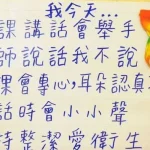 我今天…
課講話會舉手
師說話我不說
課會專心,耳朵認真
話時會小小聲
持整潔愛衛生